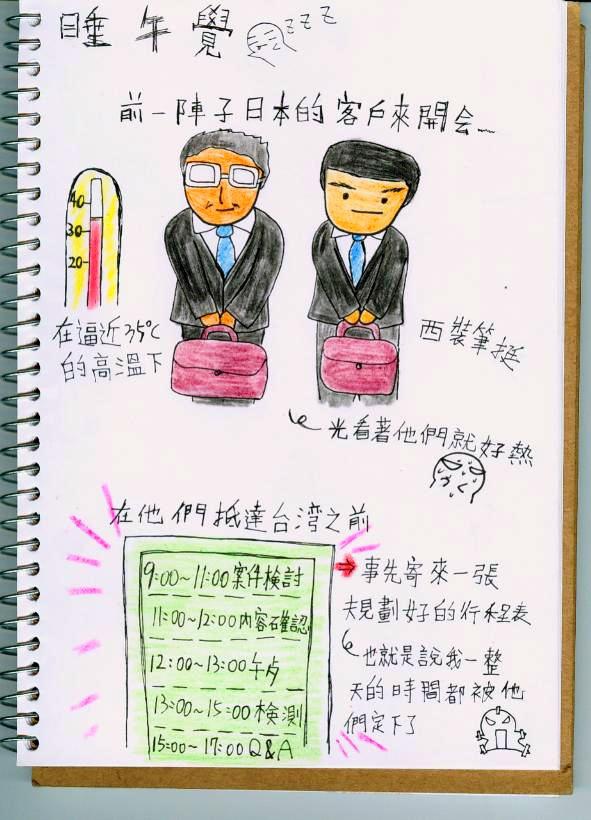 睡午覺
zzz
前一陣子日本的客戶來開会
40
30
20
在逼近35°C
的高溫下
西裝筆挺
光看著他們就好熱
在他們抵達台湾之前
9:00~11:00案件検討
11:00~12:00内容確認
12:00~13:00午歺
13:00~15:00検測
15:00~17:00 Q&A
事先寄來一張
規劃好的行程表
也就是說我一整
天的時間都被他
們定下了